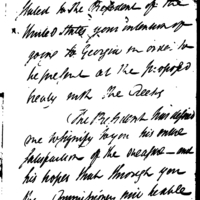 stated to the President of the
United States your intention of
going to Georgia in order to
be present at the proposed
treaty with the Creeks
The President has desired
me to signify to you his entire
satisfaction of the measure — and
his hopes that through you
the Commissioners